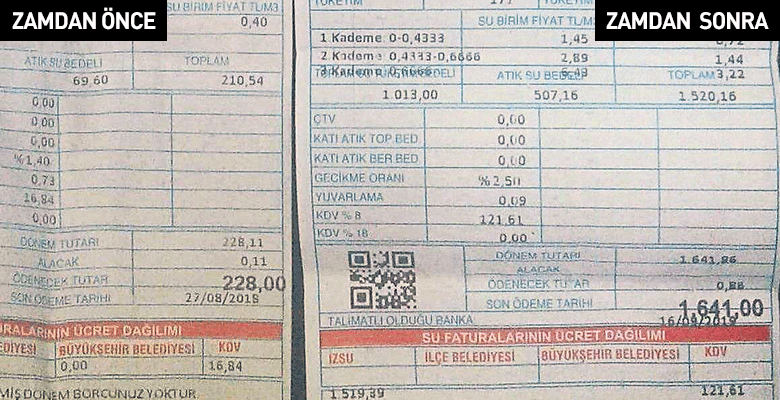 ZAMDAN ÖNCE
SU BİRİM FİYAT TL/M3
0,40
ATIK SU BEDELİ TOPLAM
69,60 210,54
0,00
0,00
0,00
%1,40
0,73
16,84
0,00
DÖNEM TUTARI 228,11
ALACAK 0,11
ÖDENECEK TUTAR 228,00
SON ÖDEME TARİHİ 27/08/2018
ÜCRET DAĞILIMI
BÜYÜKŞEHİR BELEDİYESİ KDV
0,00 16,84
DÖNEM BORCUNUZ YOKTUR.
ZAMDAN SONRA
TÜKETİM 177
SU BİRİM FİYAT TL/M3
1.Kademe: 0-0,4333 1,45 0,72
2.Kademe: 0,4333-0,6666 2,89 1,44
3.Kademe: 0,6666 3,22
ATIK SU BEDELİ TOPLAM
1.013,00 507,16 1.520,16
ÇTV 0,00
KATI ATIK TOP.BED. 0,00
KATI ATIK BER.BED. 0,00
GECİKME ORANI %2,50
YUVARLAMA 0,09
KDV % 8 121,61
KDV % 18 0,00
DÖNEM TUTARI 1.641,86
ALACAK
ÖDENECEK TUTAR 0,86
SON ÖDEME TARİHİ 1.641,00
TALİMATLI OLDUĞU BANKA 16/09/2019
SU FATURALARININ ÜCRET DAĞILIMI
İZSU İLÇE BELEDİYESİ BÜYÜKŞEHİR BELEDİYESİ KDV
1.519,39 121,61